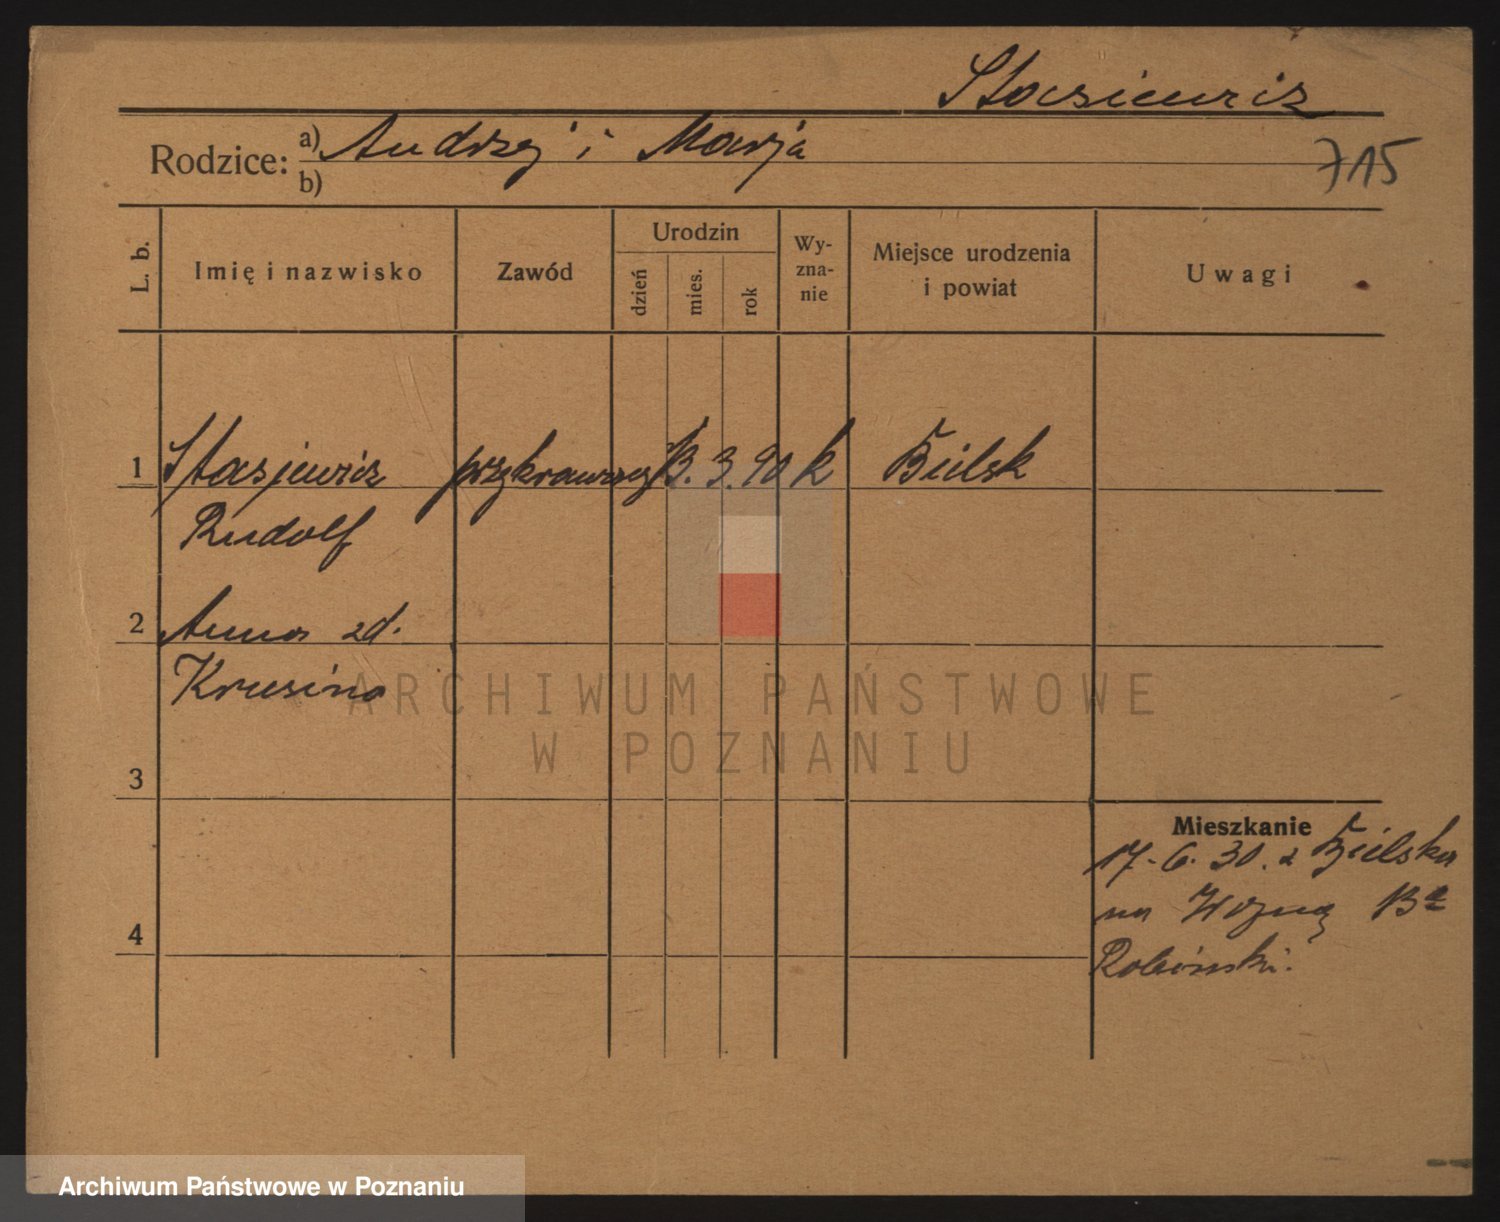 Stasiewicz
Rodzice: a) Andrzej i Marja
b)
715
L. b.
Imię i nazwisko
Zawód
Urodzin
dzień
mies.
rok
Wy-
zna-
nie
Miejsce urodzenia
i powiat
Uwagi
1 Stasjewicz 3. 90 k Bielsk
Rudolf
2 Anna zd.
Krusina
ARCHIWUM PAŃSTWOWE
W POZNANIU
3
Mieszkanie
17. 6. 30. z Bielska
na Woźną 13
4
Robiński.
Archiwum Państwowe w Poznaniu